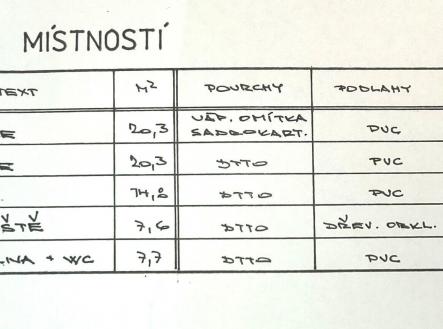 MÍSTNOSTÍ
TEXT M² POVRCHY PODLAHY
VÁP. OMÍTKA
E 20,3 SÁDROKART. PVC
E 20,3 DTTO PVC
14,8 DTTO PVC
IŠTĚ 7,6 DTTO DŘEV. OBKL.
LNA + WC 7,7 DTTO PVC